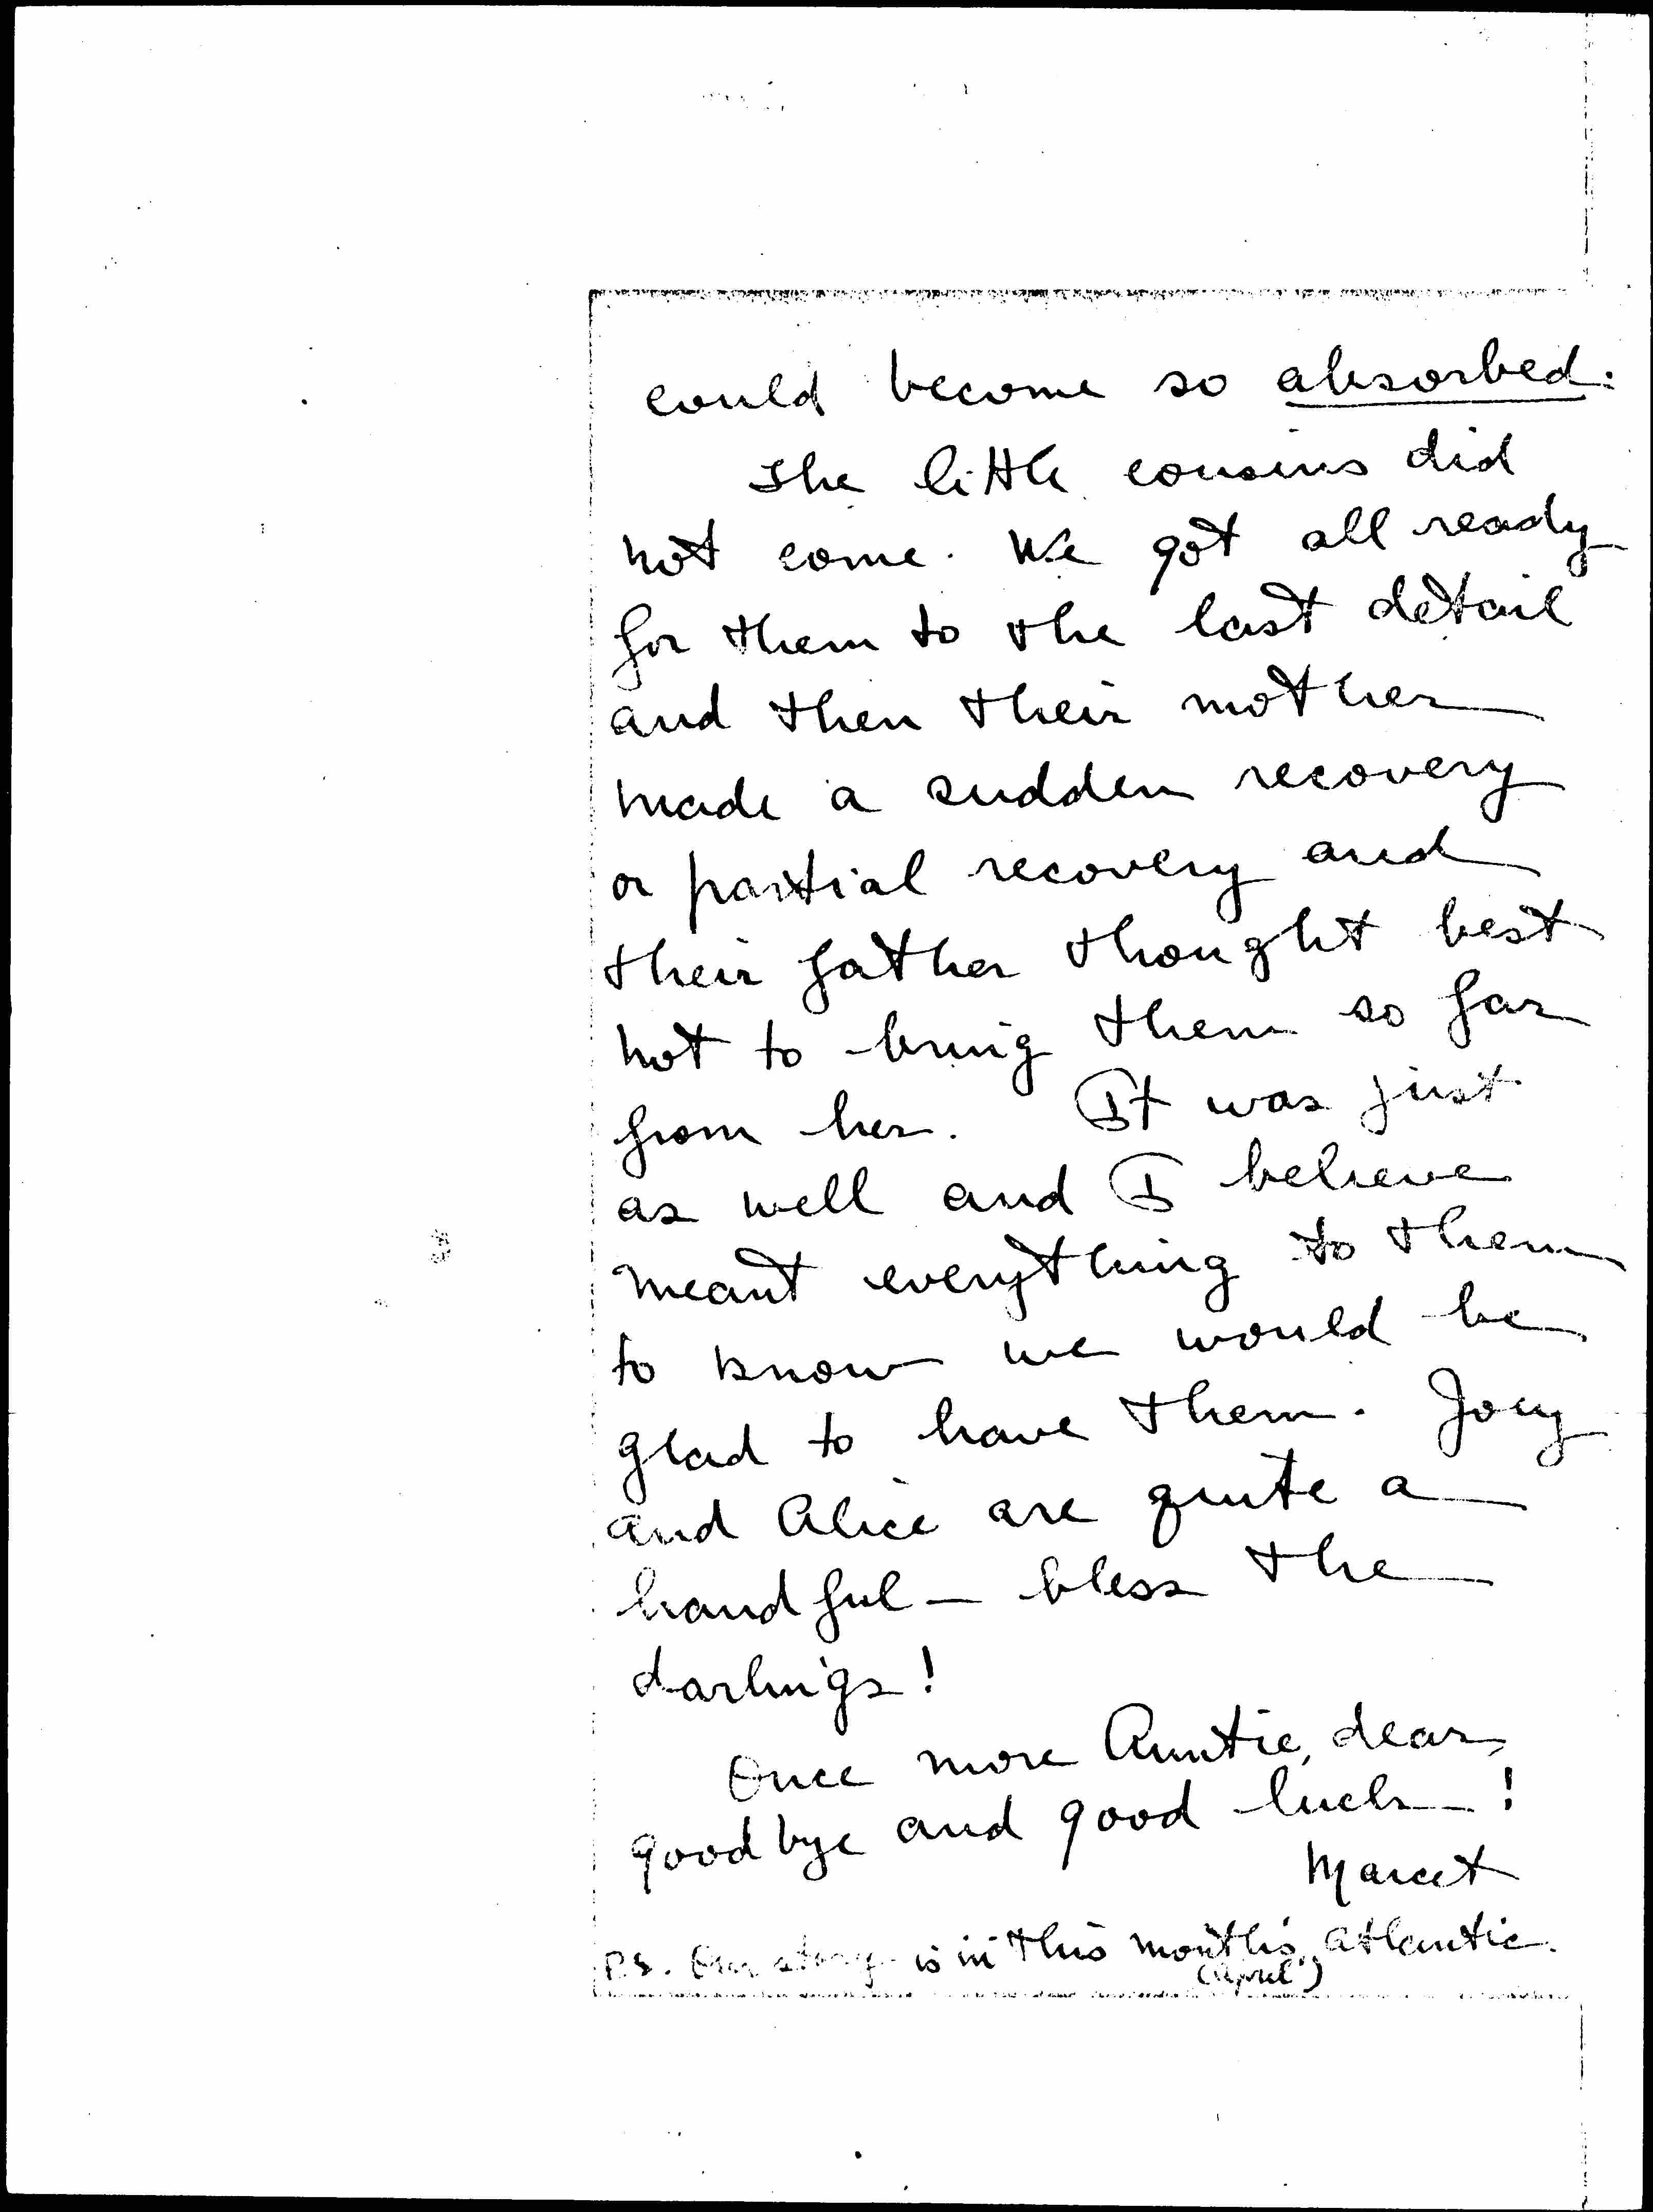 could become so absorbed.
The little cousins did
not come. We got all ready
for them to the last detail
and then their mother
made a sudden recovery
or partial recovery and
their father thought best
not to bring them so far
from her. It was just
as well and I believe
meant everything to them
to know we would be
glad to have them. Joey
and Alice are quite a
handful – bless the
darlings!
Once more Auntie, dear,
goodbye and good luck – !
Marcet
P.S. Our story is in this month's Atlantic.
(April)